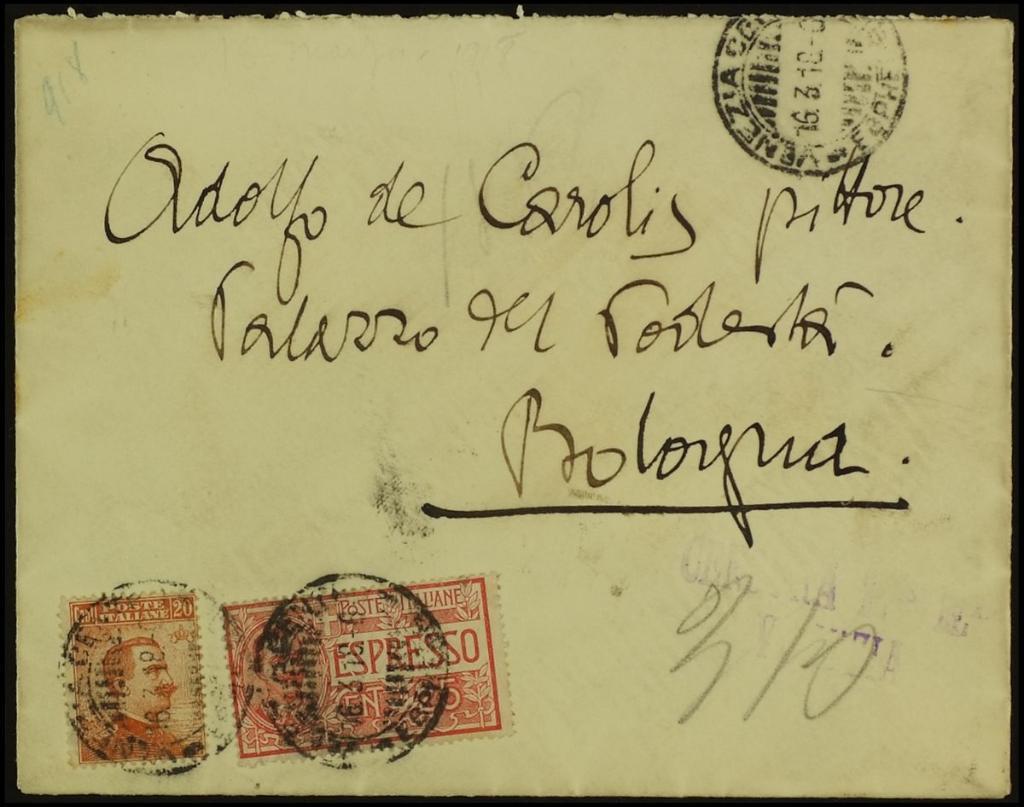 918
VENEZIA
16.3.18
Adolfo de Carolis pittore.
Palazzo del Podestà.
Bologna.
POSTE
ITALIANE
20
POSTE ITALIANE
ESPRESSO
16.3.18